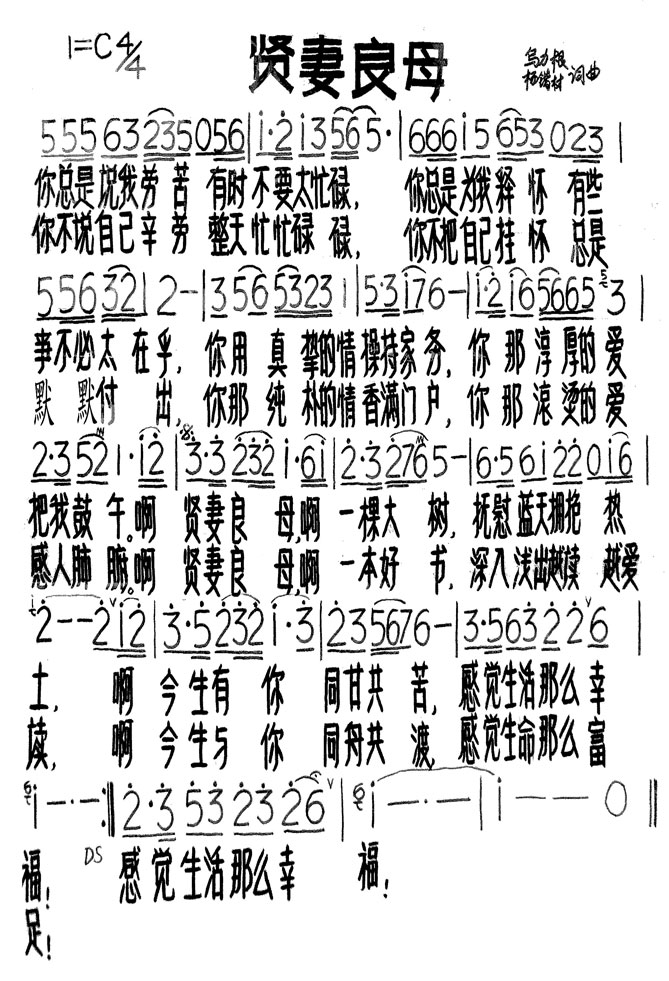 1=C 4/4
贤妻良母
乌力根
杨锴材 词曲
555 63 235 056 | i·2 i3 565 5· | 666 i5 653 023 |
你总是说我劳苦 有时不要太忙碌, 你总是为我释怀 有些
你不说自己辛劳 整天忙忙碌碌, 你不把自己挂怀 总是
556 32 | 2 — | 356 5323 1 | 5·3 i76 — | i·2 i65665 3 |
事不必太在乎, 你用真挚的情操持家务, 你那淳厚的爱
默默付出, 你那纯朴的情香满门户, 你那滚烫的爱
2·3 52 1· i2 | 3·3 232 i·6i | 2·3 2765 — | 6·56i 22 0i6 |
把我鼓午。啊 贤妻良母,啊 一棵大树, 抚慰蓝天拥抱热
感人肺腑。啊 贤妻良母,啊 一本好书, 深入浅出越读越爱
2 — — 2i2 | 3·5 232 i·3 | 23 5676 — | 3·563 226 |
土, 啊 今生有你同甘共苦, 感觉生活那么幸
读, 啊 今生与你同舟共渡, 感觉生命那么富
i — · — · :‖ 2·3 53 23 26 | i — · — · | i — — O ‖
福! DS 感觉生活那么幸福!
足!